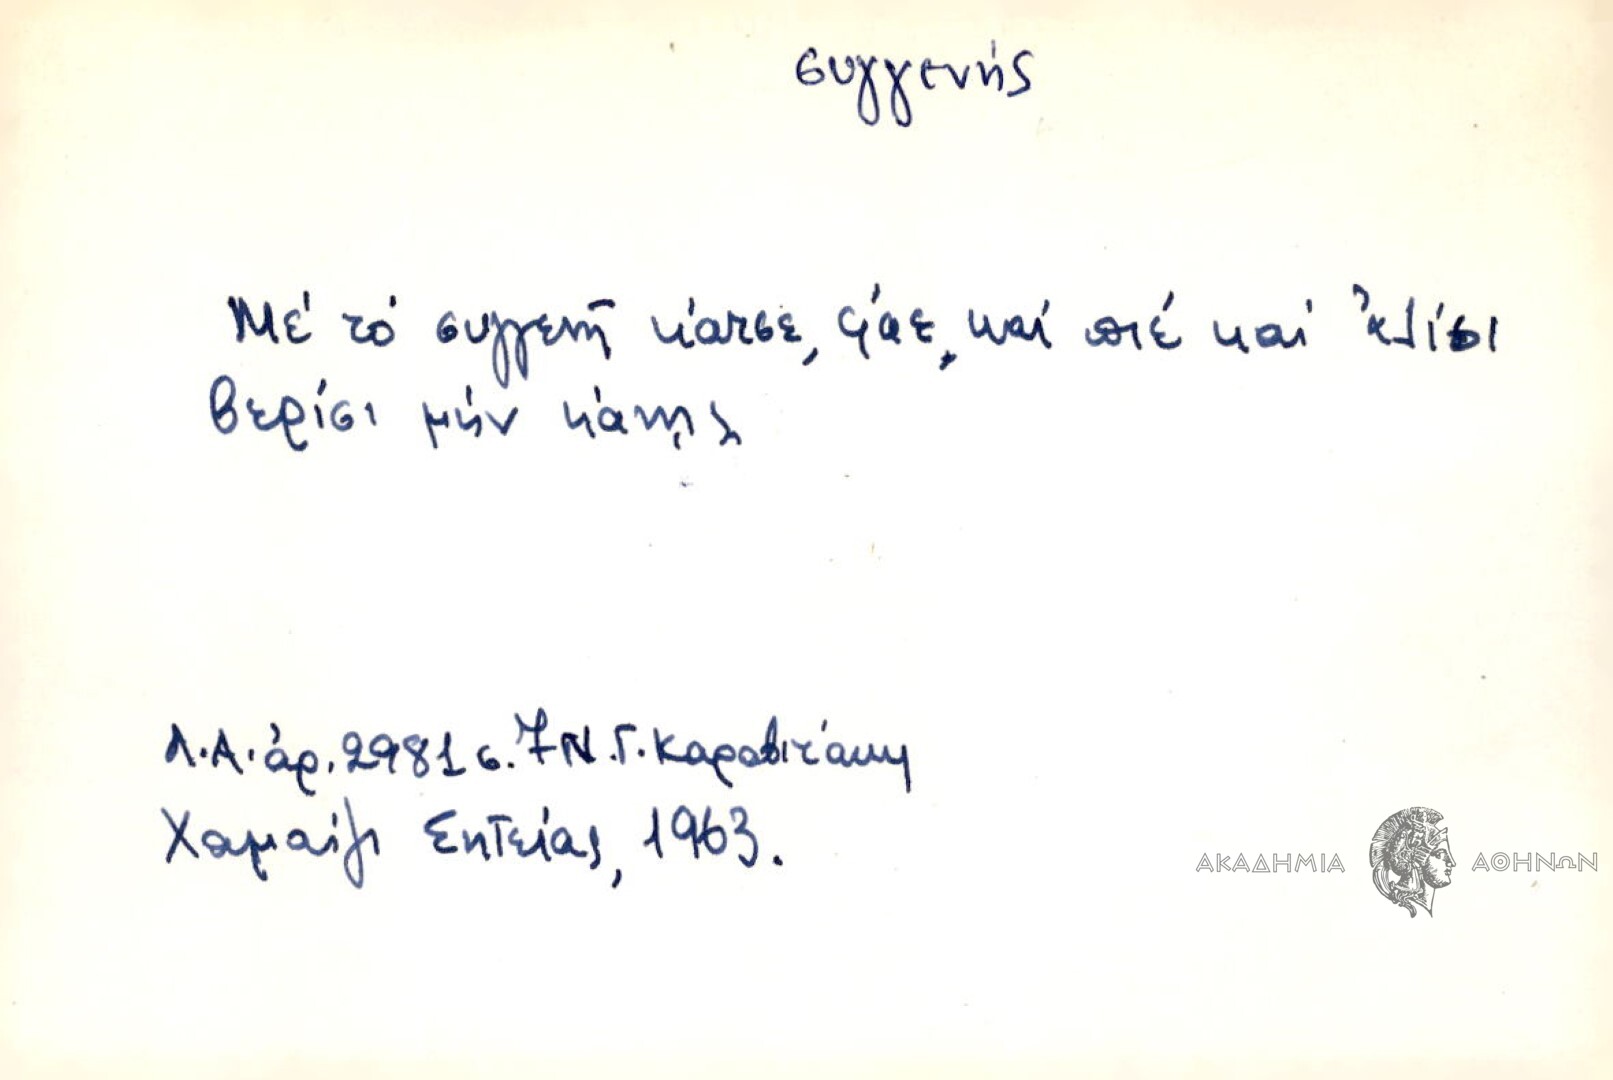 συγγενής
Μέ τό συγγενῆ κάτσε, φάε, καί πιέ καί ἀλίσι
βερίσι μήν κάνῃς
Λ.Α. ἀρ. 2981 σ. 7 Ν. Γ. Καραβιτάκη
Χαμαίζι Σητείας, 1963.
ΑΚΑΔΗΜΙΑ ΑΘΗΝΩΝ